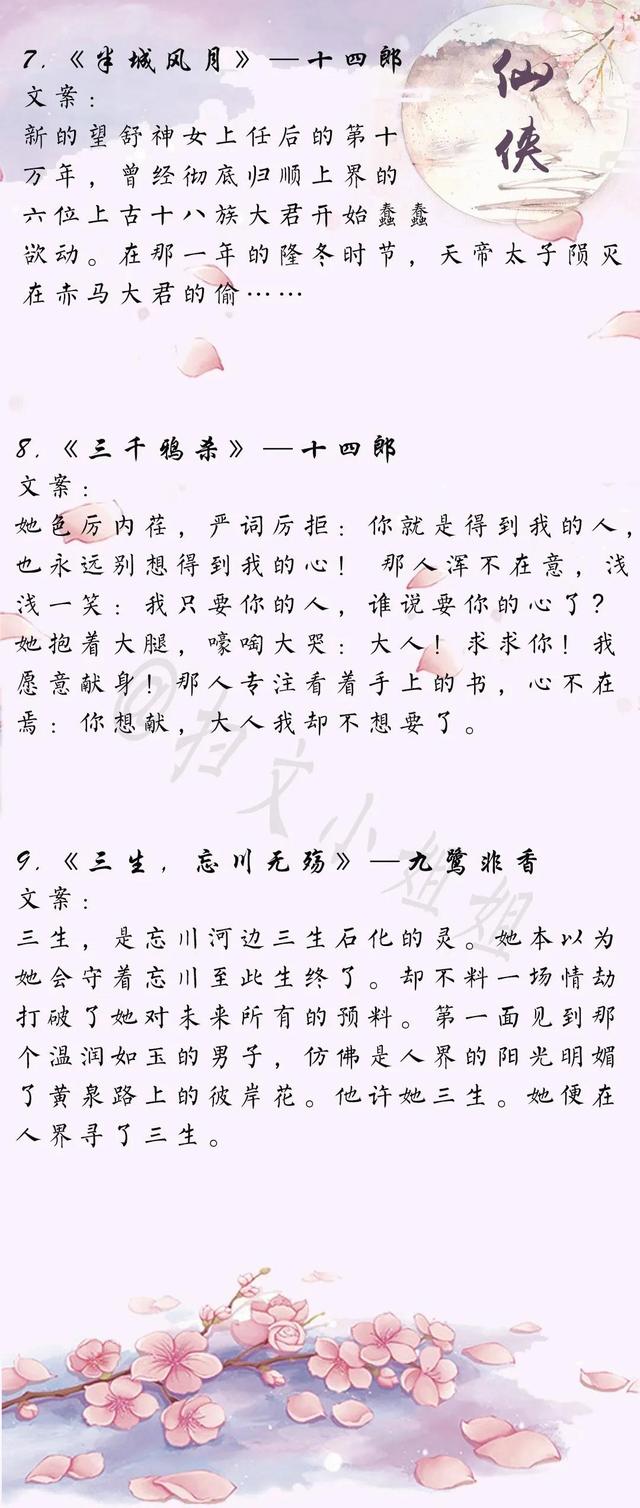 仙侠
7.《半城风月》—十四郎
文案：
新的望舒神女上任后的第十
万年，曾经彻底归顺上界的
六位上古十八族大君开始蠢蠢
欲动。在那一年的隆冬时节，天帝太子陨灭
在赤马大君的偷……
8.《三千鸦杀》—十四郎
文案：
她色厉内荏，严词厉拒：你就是得到我的人，
也永远别想得到我的心！ 那人浑不在意，浅
浅一笑：我只要你的人，谁说要你的心了？
她抱着大腿，嚎啕大哭：大人！求求你！我
愿意献身！那人专注看着手上的书，心不在
焉：你想献，大人我却不想要了。
@扫文小姐姐
9.《三生，忘川无殇》—九鹭非香
文案：
三生，是忘川河边三生石化的灵。她本以为
她会守着忘川至此生终了。却不料一场情劫
打破了她对未来所有的预料。第一面见到那
个温润如玉的男子，仿佛是人界的阳光明媚
了黄泉路上的彼岸花。他许她三生。她便在
人界寻了三生。